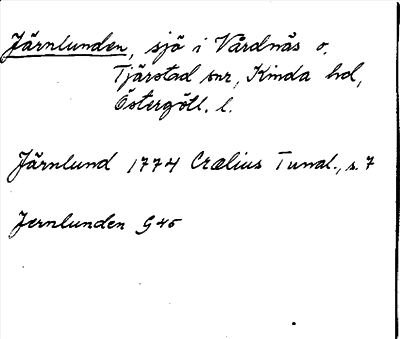 Järnlunden, sjö i Vårdnäs o.
Tjärstad snr, Kinda hd,
Östergötl. l.
Järnlund 1774 Crælius Tunal., s. 7
Jernlunden G 45